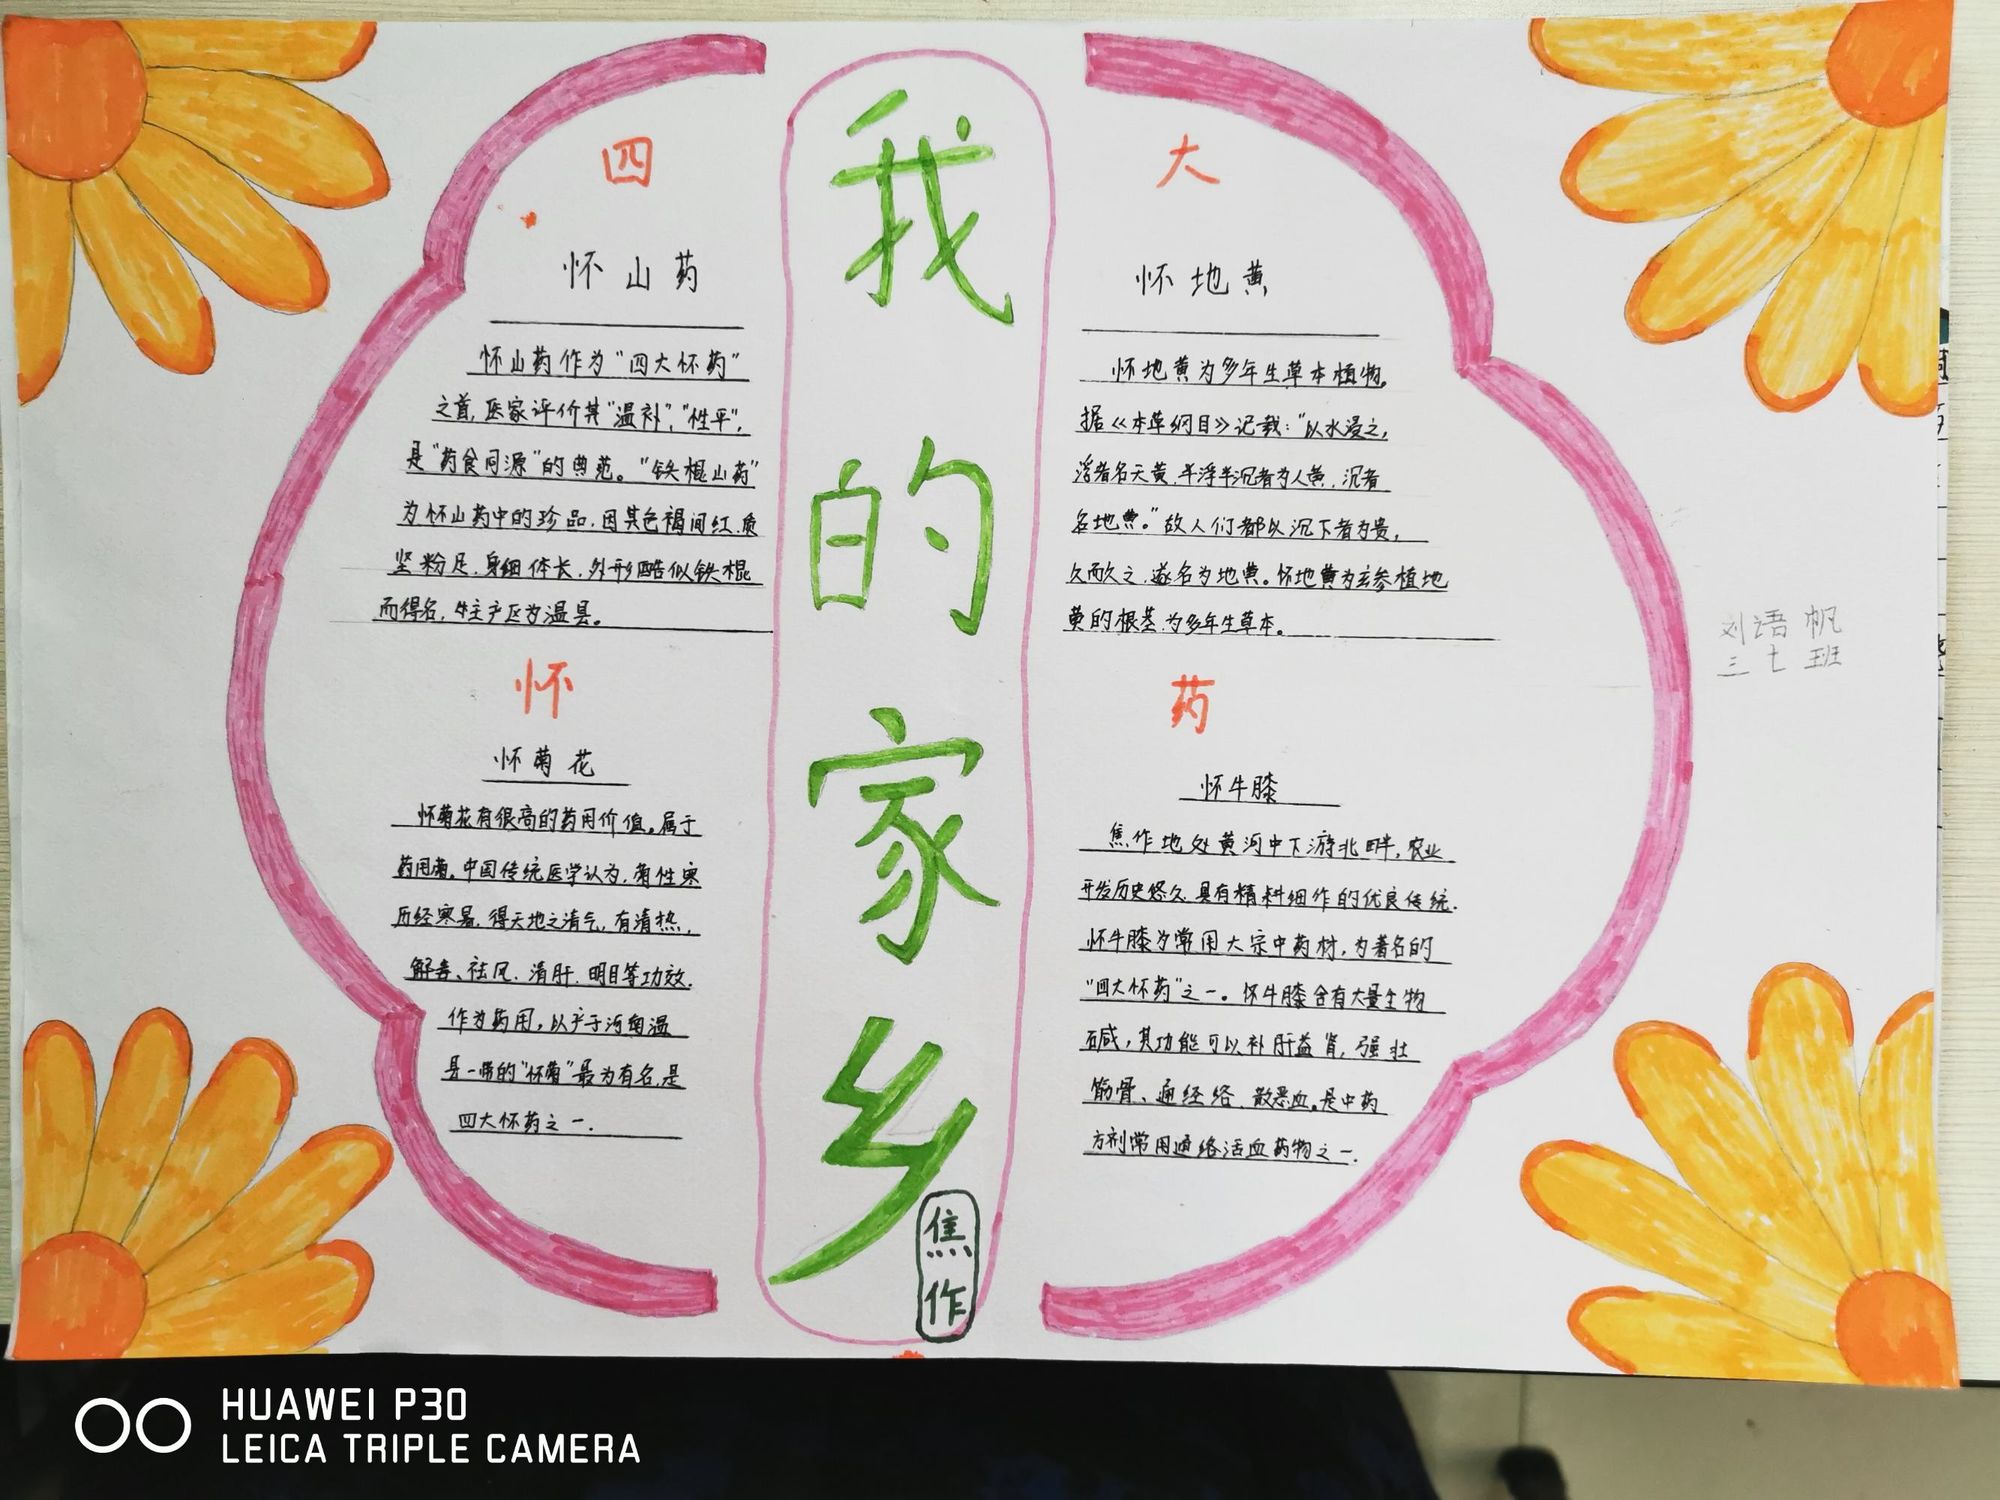 我的家乡
焦作
四
怀山药
怀山药作为“四大怀药”
之首,医家评价其“温补”,“性平”,
是“药食同源”的典范。“铁棍山药”
为怀山药中的珍品,因其色褐间红,质
坚粉足,身细体长,外形酷似铁棍
而得名,主产区为温县。
大
怀地黄
怀地黄为多年生草本植物。
据《本草纲目》记载:“以水浸之,
浮者名天黄,半浮半沉者为人黄,沉者
名地黄。”故人们都以沉下者为贵,
久而久之,遂名为地黄。怀地黄为玄参植地
黄的根茎,为多年生草本。
怀
怀菊花
怀菊花有很高的药用价值。属于
药用菊。中国传统医学认为,菊性寒
历经寒暑,得天地之清气,有清热,
解毒、祛风、清肝、明目等功效.
作为药用,以产于河南温
县一带的“怀菊”最为有名,是
四大怀药之一.
药
怀牛膝
焦作地处黄河中下游北畔,农业
开发历史悠久,具有精料细作的优良传统.
怀牛膝为常用大宗中药材,为著名的
“四大怀药”之一。怀牛膝含有大量生物
碱,其功能可以补肝益肾,强壮
筋骨、通经络、散恶血。是中药
方剂常用通络活血药物之一.
刘语帆
三七班
HUAWEI P30
LEICA TRIPLE CAMERA